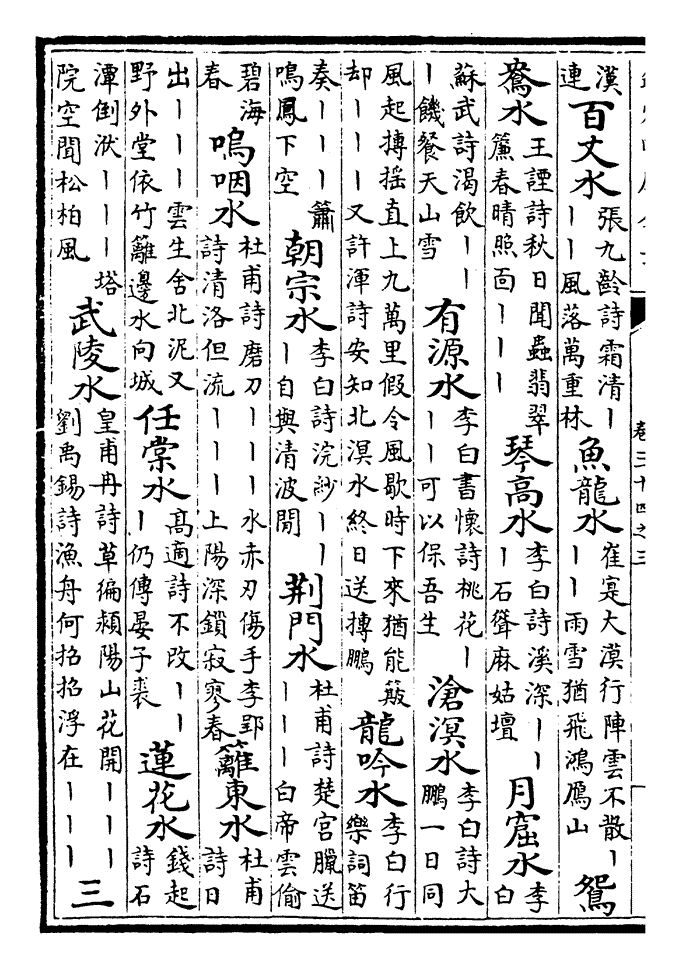 卷三十四之三
漢連百丈水張九齡詩霜清丨丨丨風落萬重林魚龍水崔寔大漠行陣雲不散丨丨丨雨雪猶飛鴻鴈山鴛
鴦水王諲詩秋日聞蟲翡翠簾春晴照面丨丨丨琴高水李白詩溪深丨丨丨石聳麻姑壇月窟水李白
蘇武詩渴飲丨丨丨饑餐天山雪有源水李白書懷詩桃花丨丨丨可以保吾生滄溟水李白詩大鵬一日同
風起摶摇直上九萬里假令風歇時下來猶能簸却丨丨丨又許渾詩安知北溟水終日送摶鵬龍吟水李白行樂詞笛
奏丨丨丨簫鳴鳳下空朝宗水李白詩浣紗丨丨丨自與清波閒荆門水杜甫詩楚宮臘送丨丨丨白帝雲偷
碧海春嗚咽水杜甫詩磨刀丨丨丨水赤刃傷手李郢詩清洛但流丨丨丨上陽深鎖寂寥春籬東水杜甫詩日
出丨丨丨雲生舍北泥又野外堂依竹籬邊水向城任棠水高適詩不改丨丨丨仍傳晏子裘蓮花水錢起詩石
潭倒洑丨丨丨塔院空聞松柏風武陵水皇甫冉詩草徧潁陽山花開丨丨丨劉禹錫詩漁舟何招招浮在丨丨丨三